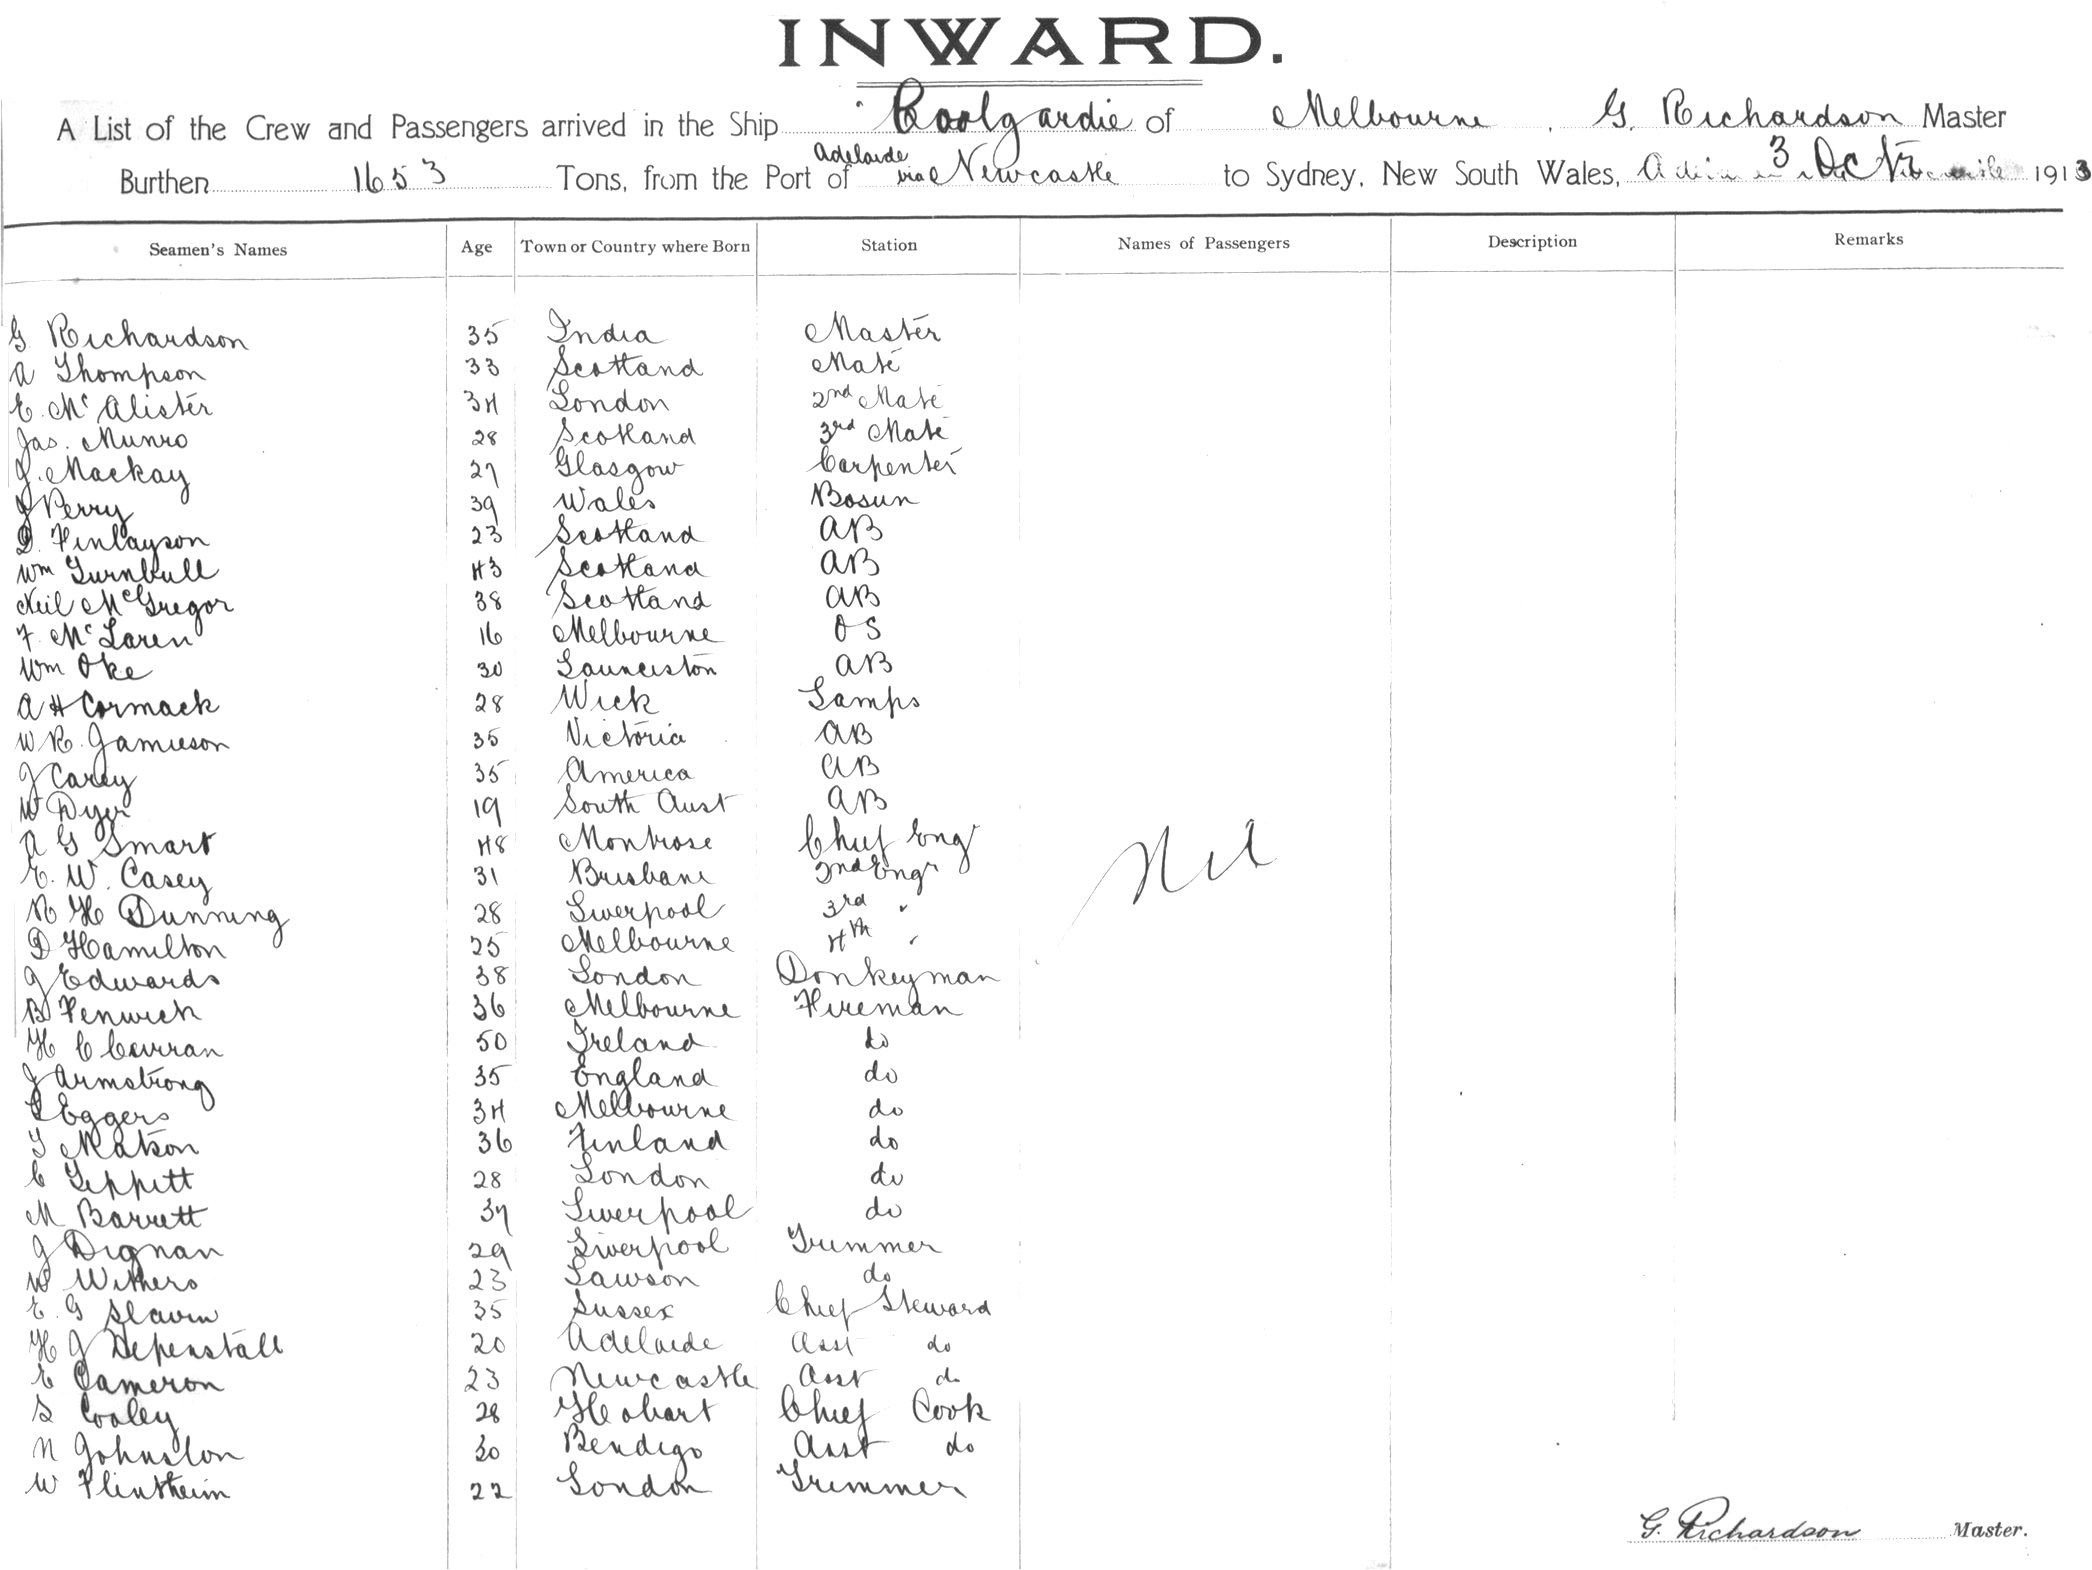 INWARD.
A List of the Crew and Passengers arrived in the Ship Coolgardie of Melbourne, G. Richardson Master
Burthen 1653 Tons, from the Port of Adelaide via Newcastle to Sydney, New South Wales, 3 Octr 1913
Seamen's Names Age Town or Country where Born Station Names of Passengers Description Remarks
G Richardson 35 India Master
A Thompson 33 Scotland Mate
E. McAlister 34 London 2nd Mate
Jas. Munro 28 Scotland 3rd Mate
J. Mackay 27 Glasgow Carpenter
J Perry 39 Wales Bosun
D. Finlayson 23 Scotland AB
Wm Turnbull 43 Scotland AB
Neil McGregor 38 Scotland AB
F. McLaren 16 Melbourne OS
Wm Oke 30 Launciston AB
A H Cormack 28 Wick Lamps
W R. Jamieson 35 Victoria AB
J Carey 35 America AB
W Dyer 19 South Aust AB
A G Smart 48 Montrose Chief Engr
E. W. Casey 31 Brisbane 2nd Engr
N H Dunning 28 Liverpool 3rd "
D Hamilton 25 Melbourne 4th "
J Edwards 38 London Donkeyman
B Fenwick 36 Melbourne Fireman
H C Curran 50 Ireland do
J Armstrong 35 England do
Eggers 34 Melbourne do
T Matson 36 Finland do
C Tippitt 28 London do
M Barrett 37 Liverpool do
J Dignan 29 Liverpool Trimmer
W Withers 23 Lawson do
E. G Slavin 35 Sussex Chief Steward
H J Hepenstall 20 Adelaide Asst do
E Cameron 23 Newcastle Asst do
S Cooley 28 Hobart Chief Cook
N Johnston 30 Bendigo Asst do
W Flintheim 22 London Trimmer
Nil
G. Richardson Master.